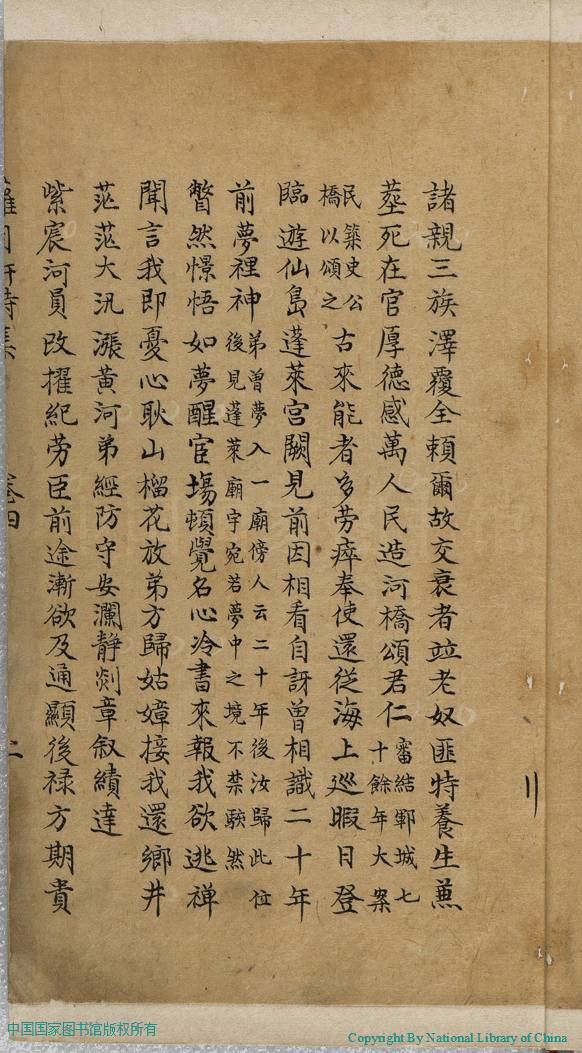 諸親三族澤覆全頼爾故交衰者竝老奴匪特養生兼
塟死在官厚德感萬人民造河橋頌君仁審結鄆城七十餘年大案
民築史公橋以頌之古來能者多劳瘁奉使還従海上廵暇日登
臨遊仙島蓬萊宮闕見前因相看自訝曾相識二十年
前夢裡神弟曾夢入一廟傍人云二十年後汝歸此位後見蓬萊廟宇宛若夢中之境不禁駭然
瞥然憬悟如夢醒宦塲頓覺名心冷書來報我欲逃禅
聞言我即憂心耿山榴花放弟方歸姑嫜接我還鄉井
茫茫大汛漲黄河弟經防守安瀾静剡章叙績達
紫宸河員改擢紀劳臣前途漸欲及通顯後禄方期貴
卷四
二
中国国家图书馆版权所有
Copyright By National Library of China